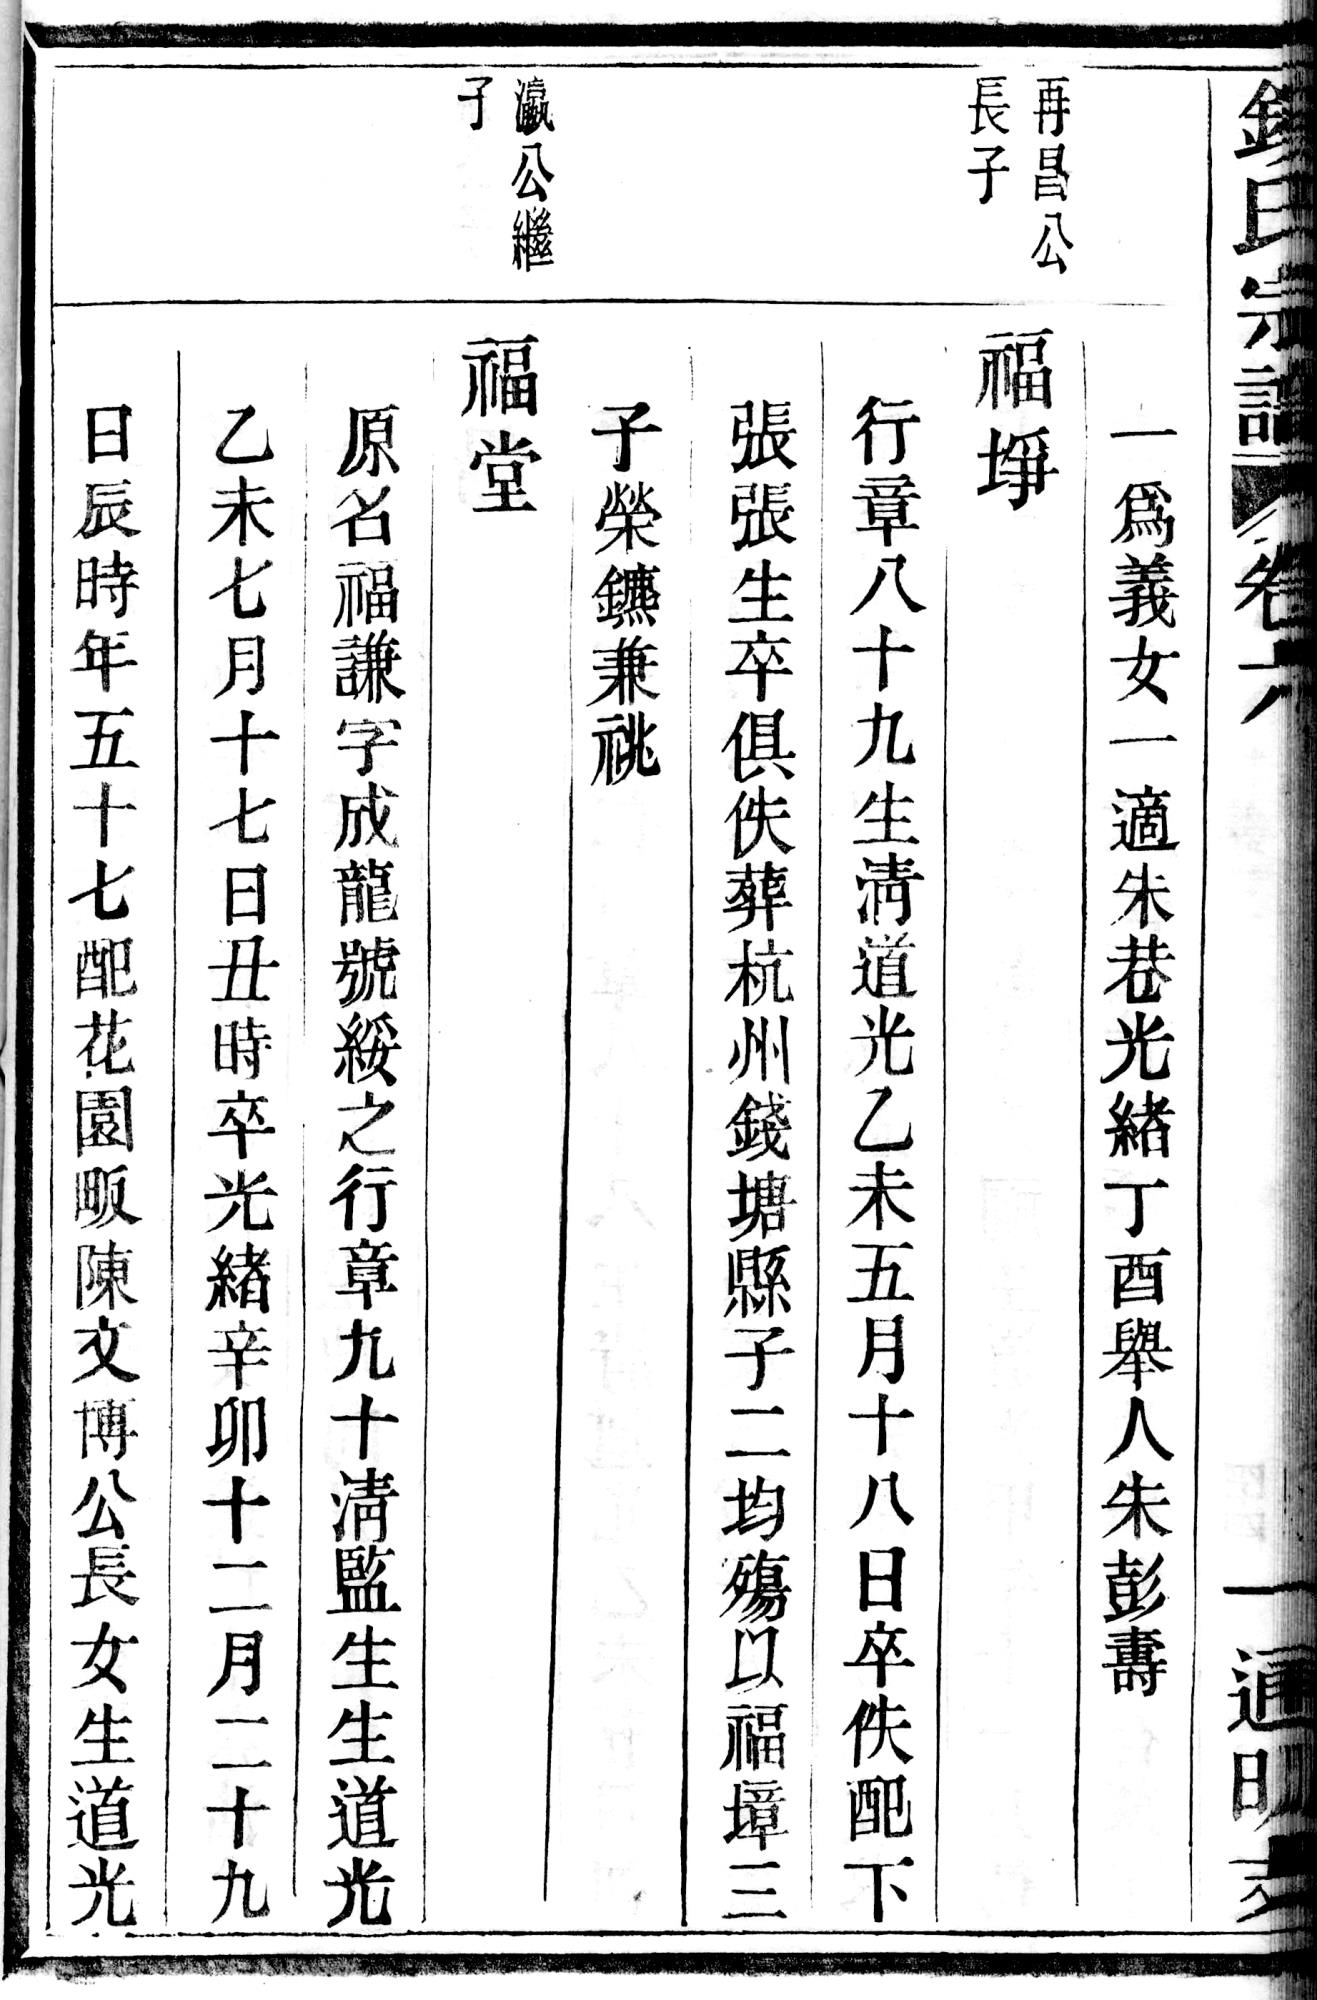 氏宗譜
卷六
一
通明
一爲義女一適朱巷光緒丁酉舉人朱彭壽
再昌公
長子
福埩
行章八十九生淸道光乙未五月十八日卒佚配下
張張生卒俱佚葬杭州錢塘縣子二均殤以福墇三
子榮鑣兼祧
瀛公繼
子
福堂
原名福謙字成龍號綏之行章九十淸監生生道光
乙未七月十七日丑時卒光緒辛卯十二月二十九
日辰時年五十七配花園畈陳文博公長女生道光